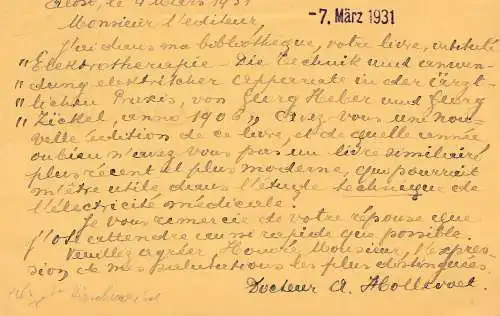 le 4 Mars 1931
-7. März 1931
Monsieur l'editeur,
J'ai dans ma bibliothèque, votre livre, intitulé
"Elektrotherapie - Die Technik und anwen-
dung elektrischer Apperrate in der ärzt-
lichen Praxis, von Georg Heber und Georg
Zickel, anno 1906" Avez vous une nou-
velle édition de ce livre, et de quelle année
ou bien n'avez vous pas un livre similaire
plus récent et plus moderne, qui pourrait
m'être utile dans l'étude technique de
l'électricité médicale.
Je vous remercie de votre réponse que
j'ose attendre aussi rapide que possible.
Veuillez agréer, Honoré Monsieur, l'expres-
sion de mes salutations les plus distinguées,
Docteur A. Hollevoet